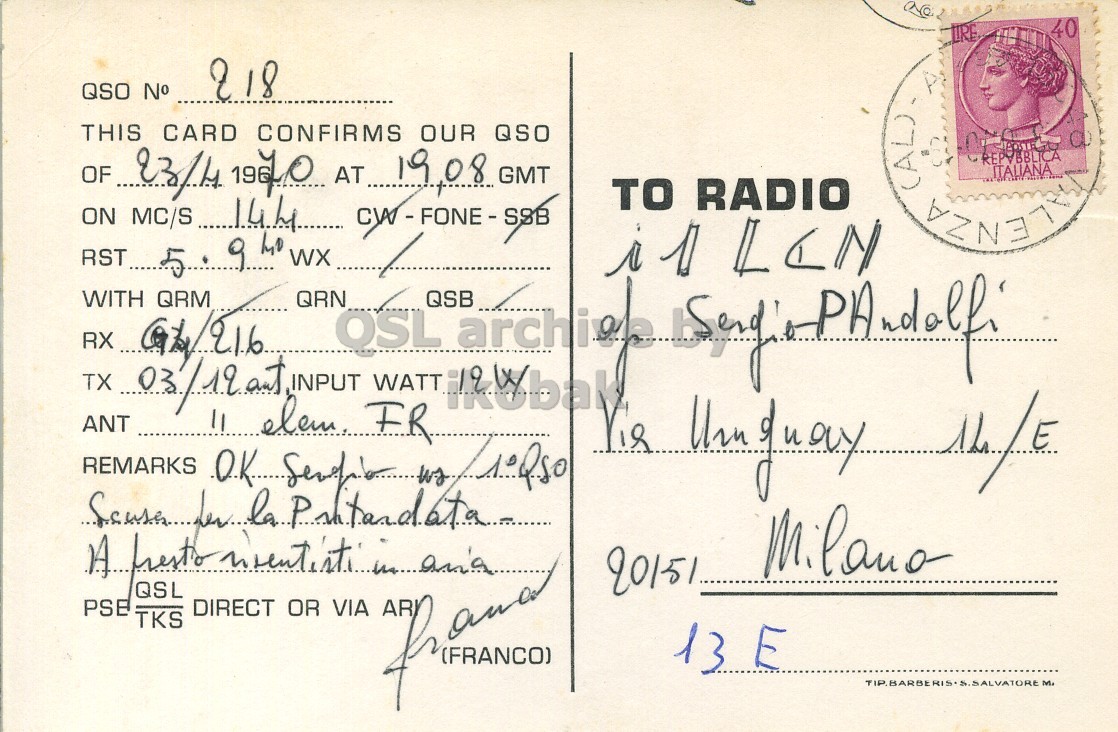 QSO Nº 218
THIS CARD CONFIRMS OUR QSO
OF 23/4 1970 AT 19,08 GMT
ON MC/S 144 CW - FONE - SSB
RST 5.9 WX /
WITH QRM / QRN / QSB /
RX /216
TX 03/12 ant. INPUT WATT 12W
ANT 11 elem. FR
REMARKS OK Sergio ns/1º QSO
Scusa per la
A presto risentirti in aria
PSE QSL TKS DIRECT OR VIA ARI
Franco
(FRANCO)
LIRE 40
POSTE
REPVBBLICA
ITALIANA
VALENZA
TO RADIO
i1 LCN
op Sergio PAndolfi
Via Uruguay 14/E
20151 Milano
13 E
TIP. BARBERIS - S. SALVATORE M.
QSL archive by
ik6bak